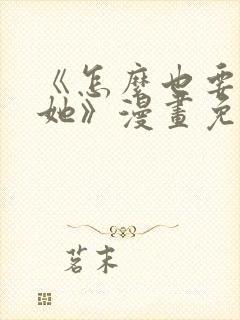 《怎麼也要
她》漫畫免
茗末